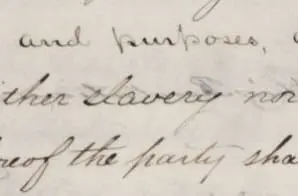 and purposes,
ither slavery nor
reof the party sha